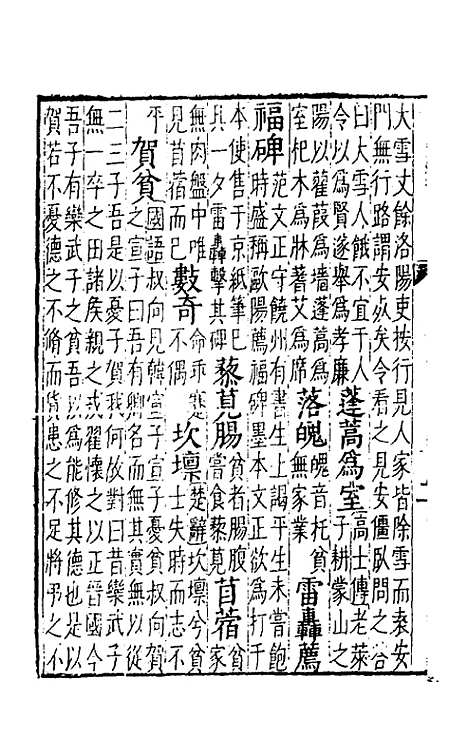 大雪丈餘洛陽吏按行見人家皆除雪而袁安
門無行路謂安死矣令看之見安僵臥問之答
曰大雪人餓不宜于人
令以為賢遂舉為孝廉
蓬蒿為室
高士傳老萊
子耕蒙山之
陽以雚葭為墻蓬蒿為
室杝木為牀蓍艾為席
落魄
魄音托貧
無家業
雷轟薦
福碑
范文正守饒州有書生上謁平生未嘗飽
時盛稱歐陽薦福碑墨本文正欲為打千
本使售于京紙筆已
具一夕雷轟擊其碑
藜莧腸
貧者腸腹
嘗食藜莧
苜蓿
貧
家
無肉盤中唯
見苜蓿而已
數奇
命乖蹇
不偶
坎壈
楚辭坎壈兮貧
士失時而志不
平
賀貧
國語叔向見韓宣子宣子憂貧叔向賀
之宣子曰吾有卿名而無其實無以從
二三子吾是以憂子賀我何故對曰昔欒武子
無一卒之田諸侯親之戎翟懷之以正晉國今
吾子有欒武子之貧吾以為能修其德也是以
賀若不憂德之不脩而貨患之不足將予之不